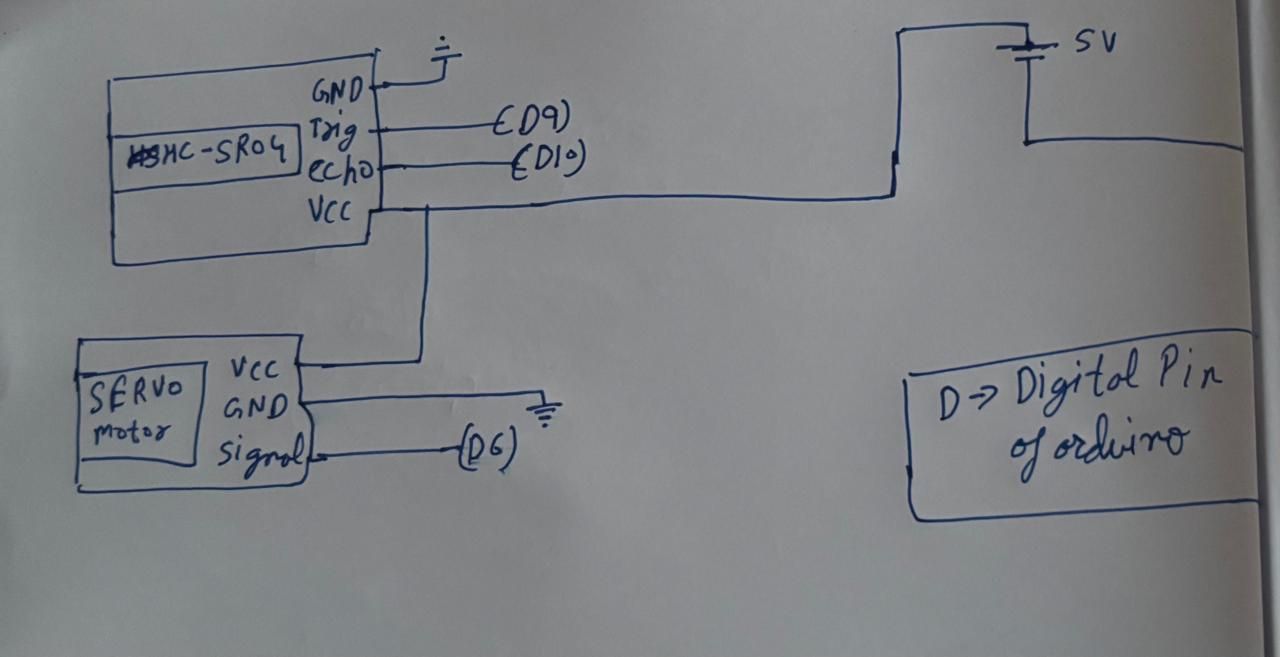 GND
Trig
HC-SR04
echo
VCC
(D9)
(D10)
5V
SERVO
motor
VCC
GND
Signal
(D6)
D→ Digital Pin
of arduino